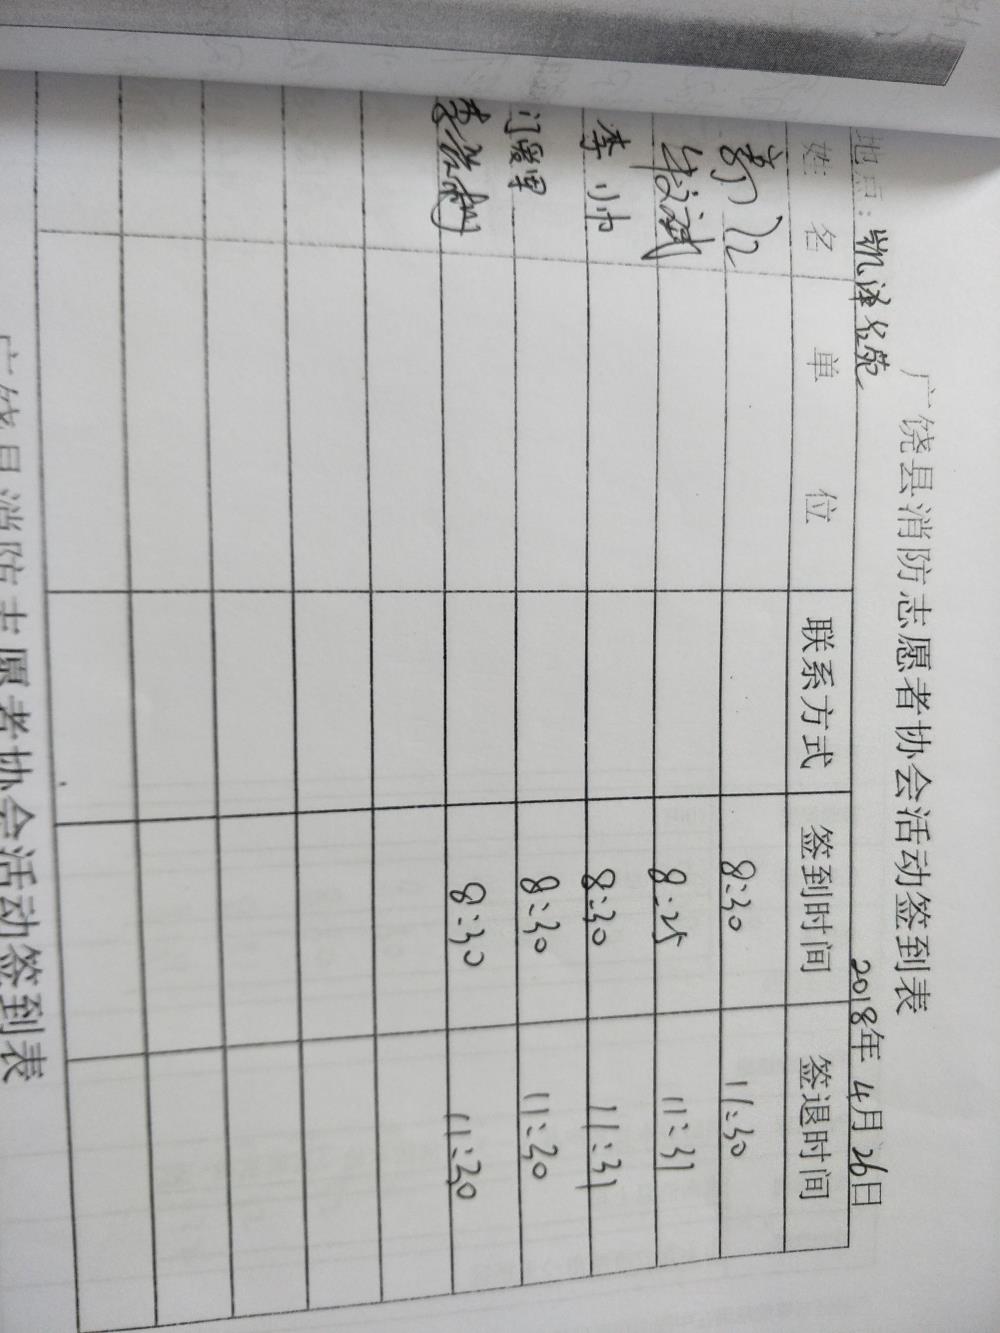 广饶县消防志愿者协会活动签到表
地点：凯泽名苑 2018年4月26日
姓名 单位 联系方式 签到时间 签退时间
8:30 11:30
8:25 11:31
李小巾 8:30 11:31
门爱军 8:30 11:30
8:30 11:30
广饶县消防志愿者协会活动签到表